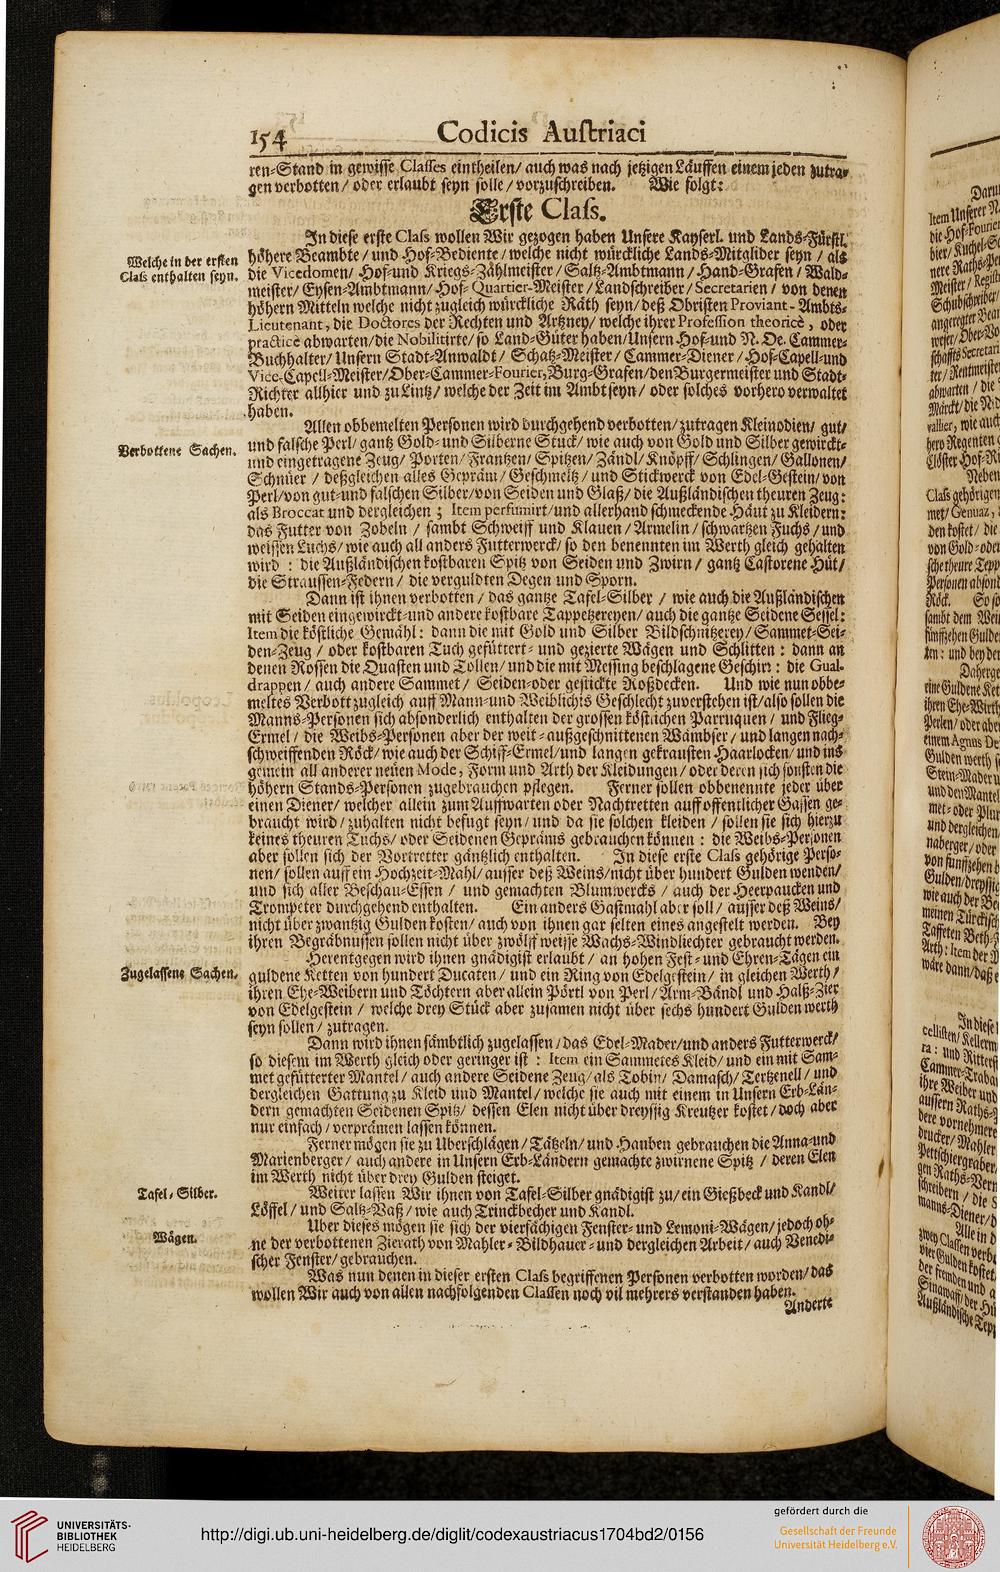 154 Codicis Austriaci
ren-Stand in gewisse Classes eintheilen/ auch was nach jetzigen Läuffen einem jeden zutra-
gen verbotten/ oder erlaubt seyn solle/ vorzuschreiben. Wie folgt:
Erste Class.
In diese erste Class wollen Wir gezogen haben Unsere Kayserl. und Lands-Fürstl.
Welche in der ersten
Class enthalten seyn.
höhere Beambte/ und Hof-Bediente/ welche nicht würckliche Lands-Mitglider seyn/ als
die Vicedomen/ Hof-und Kriegs-Zahlmeister/ Saltz-Ambtmann/ Hand-Grafen/ Wald-
meister/ Eysen-Ambtmann/ Hof-Quartier-Meister/ Landschreiber/ Secretarien/ von denen
höhern Mitteln welche nicht zugleich würckliche Räth seyn/ deß Obristen Proviant-Ambts-
Lieutenant, die Doctores der Rechten und Artzney/ welche ihrer Profession theoricè, oder
practicè abwarten/ die Nobilitirte/ so Land-Güter haben/ Unsern Hof-und N. Oe. Cammer-
Buchhalter/ Unsern Stadt-Anwaldt/ Schatz-Meister/ Cammer-Diener/ Hof-Capell-und
Vice-Capell-Meister/ Ober-Cammer-Fourier, Burg-Grafen/ den Burgermeister und Stadt-
Richter allhier und zu Lintz/ welche der Zeit im Ambt seyn/ oder solches vorhero verwaltet
haben.
Allen obbemelten Personen wird durchgehend verbotten/ zutragen Kleinodien/ gut/
Verbottene Sachen.
und falsche Perl/ gantz Gold-und Silberne Stuck/ wie auch von Gold und Silber gewirckt-
und eingetragene Zeug/ Porten/ Frantzen/ Spitzen/ Zändl/ Knöpff/ Schlingen/ Gallonen/
Schnüer/ deßgleichen alles Gepräm/ Geschmeltz/ und Stickwerck von Edel-Gestein/ von
Perl/ von gut-und falschen Silber/ von Seiden und Glaß/ die Außländischen theuren Zeug:
als Broccat und dergleichen; Item perfumirt/ und allerhand schmeckende Häut zu Kleidern:
das Futter von Zobeln/ sambt Schweiff und Klauen/ Armelin/ schwartzen Fuchs/ und
weissen Luchs/ wie auch all anders Futterwerck/ so den benennten im Werth gleich gehalten
wird: die Außländischen kostbaren Spitz von Seiden und Zwirn/ gantz Castorene Hüt/
die Straussen-Federn/ die verguldten Degen und Sporn.
Dann ist ihnen verbotten/ das gantze Tafel-Silber/ wie auch die Außländischen
mit Seiden eingewirckt-und andere kostbare Tappetzereyen/ auch die gantze Seidene Sessel:
Item die köstliche Gemähl: dann die mit Gold und Silber Bildschnitzerey/ Sammet-Sei-
den-Zeug/ oder kostbaren Tuch gefüttert-und gezierte Wägen und Schlitten: dann an
denen Rossen die Quasten und Tollen/ und die mit Messing beschlagene Geschirr: die Gual-
drappen/ auch andere Sammet/ Seiden-oder gestickte Roßdecken. Und wie nun obbe-
meltes Verbott zugleich auff Mann-und Weiblichs Geschlecht zuverstehen ist/ also sollen die
Manns-Personen sich absonderlich enthalten der grossen köstlichen Parruquen/ und Flieg-
Ermel/ die Weibs-Personen aber der weit-außgeschnittenen Wambser/ und langen nach-
schweiffenden Röck/ wie auch der Schiff-Ermel/ und langen gekrausten Haarlocken/ und ins
gemein all anderer neuen Mode, Form und Arth der Kleidungen/ oder deren sich sonsten die
höhern Stands-Personen zugebrauchen pflegen. Ferner sollen obbenennte jeder über
einen Diener/ welcher allein zum Auffwarten oder Nachtretten auff offentlicher Gassen ge-
braucht wird/ zuhalten nicht befugt seyn/ und da sie solchen kleiden/ sollen sie sich hierzu
keines theuren Tuchs/ oder Seidenen Gepräms gebrauchen können: die Weibs-Personen
aber sollen sich der Vortretter gäntzlich enthalten. In diese erste Class gehörige Perso-
nen/ sollen auff ein Hochzeit-Mahl/ ausser deß Weins/ nicht über hundert Gulden wenden/
und sich aller Beschau-Essen/ und gemachten Blumwercks/ auch der Heerpaucken und
Trompeter durchgehend enthalten. Ein anders Gastmahl aber soll/ ausser deß Weins/
nicht über zwantzig Gulden kosten/ auch von ihnen gar selten eines angestelt werden. Bey
ihren Begräbnussen sollen nicht über zwölff weisse Wachs-Windliechter gebraucht werden.
Herentgegen wird ihnen gnädigist erlaubt/ an hohen Fest-und Ehren-Tägen ein
Zugelassene Sachen.
guldene Ketten von hundert Ducaten/ und ein Ring von Edelgestein/ in gleichen Werth/
ihren Ehe-Weibern und Töchtern aber allein Pörtl von Perl/ Arm-Bändl und Halß-Zier
von Edelgestein/ welche drey Stück aber zusamen nicht über sechs hundert Gulden werth
seyn sollen/ zutragen.
Dann wird ihnen sämbtlich zugelassen/ das Edel-Mader/ und anders Futterwerck/
so diesem im Werth gleich oder geringer ist: Item ein Sammetes Kleid/ und ein mit Sam-
met gefütterter Mantel/ auch andere Seidene Zeug/ als Tobin/ Damasch/ Tertzenell/ und
dergleichen Gattung zu Kleid und Mantel/ welche sie auch mit einem in Unsern Erb-Län-
dern gemachten Seidenen Spitz/ dessen Elen nicht über dreyssig Kreutzer kostet/ doch aber
nur einfach/ verprämen lassen können.
Ferner mögen sie zu Uberschlägen/ Tätzeln/ und Hauben gebrauchen die Anna-und
Marienberger/ auch andere in Unsern Erb-Ländern gemachte zwirnene Spitz/ deren Elen
im Werth nicht über drey Gulden steiget.
Tafel-Silber.
Weiter lassen Wir ihnen von Tafel-Silber gnädigist zu/ ein Gießbeck und Kandl/
Löffel/ und Saltz-Vaß/ wie auch Trinckbecher und Kandl.
Uber dieses mögen sie sich der vierfächigen Fenster-und Lemoni-Wägen/ jedoch oh-
Wägen.
ne der verbottenen Zierath von Mahler-Bildhauer-und dergleichen Arbeit/ auch Venedi-
scher Fenster/ gebrauchen.
Was nun denen in dieser ersten Class begriffenen Personen verbotten worden/ das
wollen Wir auch von allen nachfolgenden Classen noch vil mehrers verstanden haben.
Anderte
UNIVERSITÄTS-
BIBLIOTHEK
HEIDELBERG
http://digi.ub.uni-heidelberg.de/diglit/codexaustriacus1704bd2/0156
gefördert durch die
Gesellschaft der Freunde
Universität Heidelberg e.V.